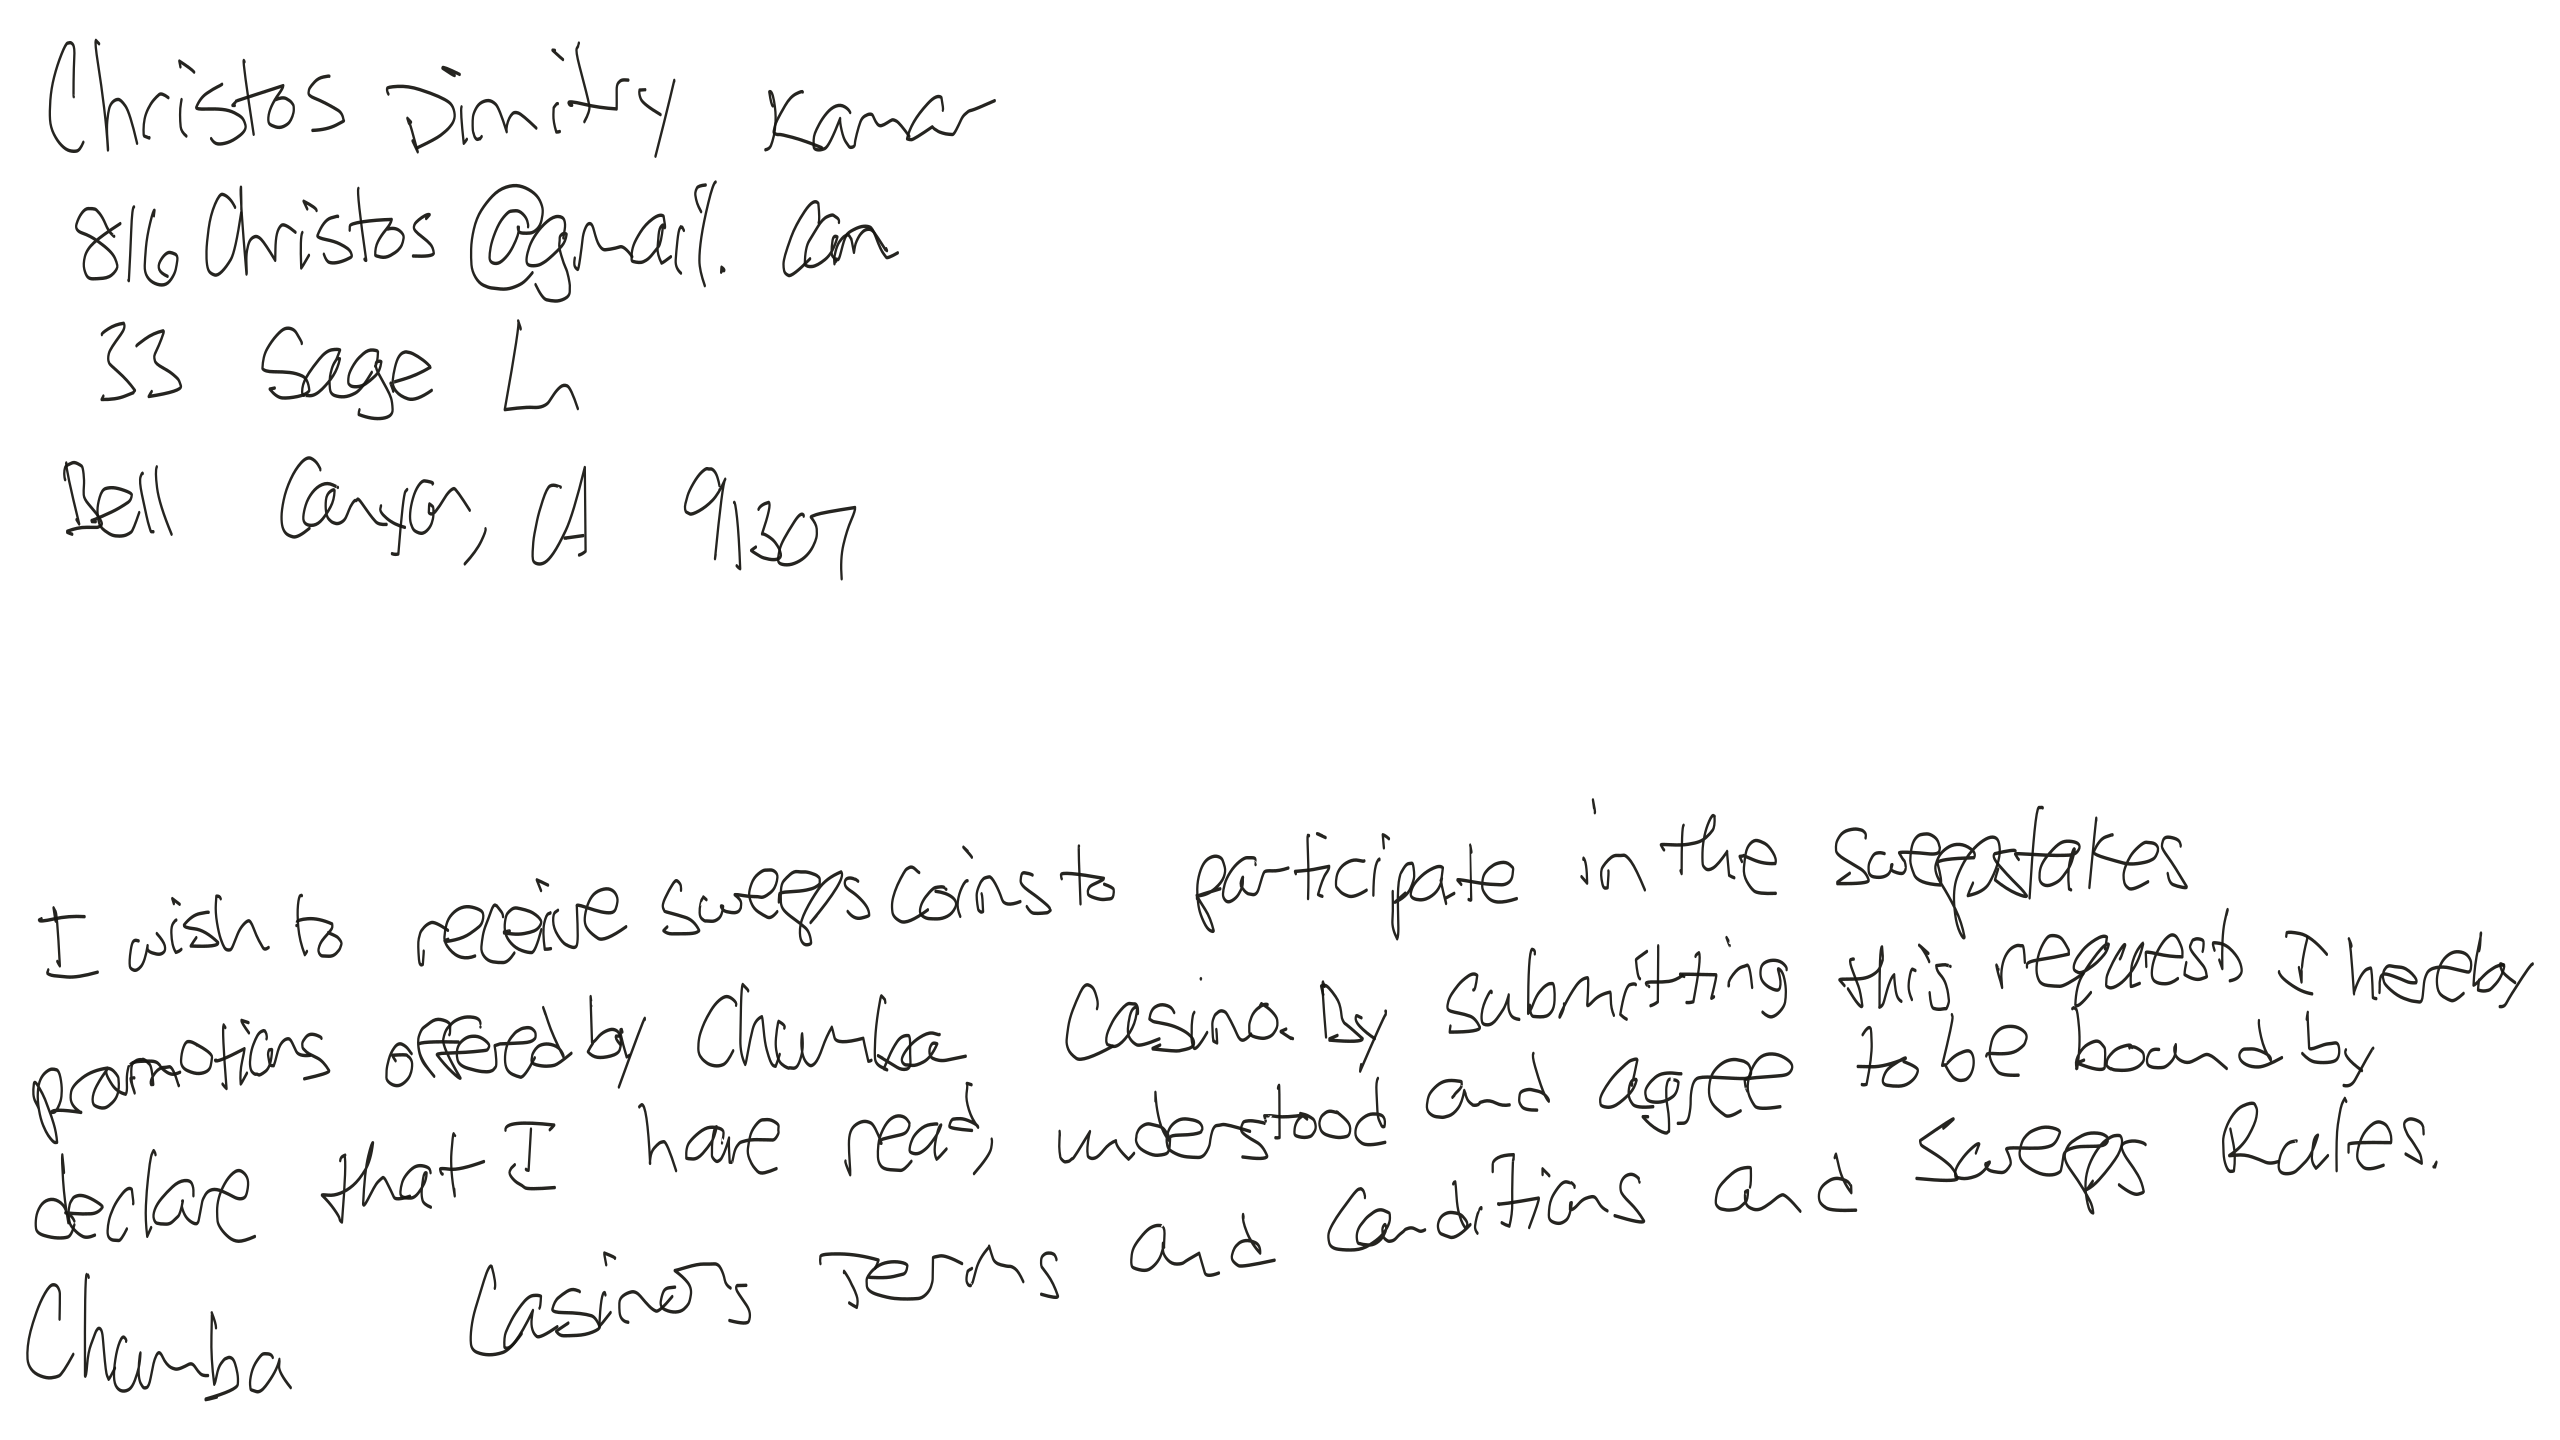 Christos Dimitry Kamar
816Christos@gmail.com
33 Sage Ln
Bell Canyon, CA 91307
I wish to receive sweeps coins to participate in the sweepstakes
promotions offered by Chumba Casino. By submitting this request, I hereby
declare that I have read, understood and agree to be bound by
Chumba Casino's Terms and Conditions and Sweeps Rules.